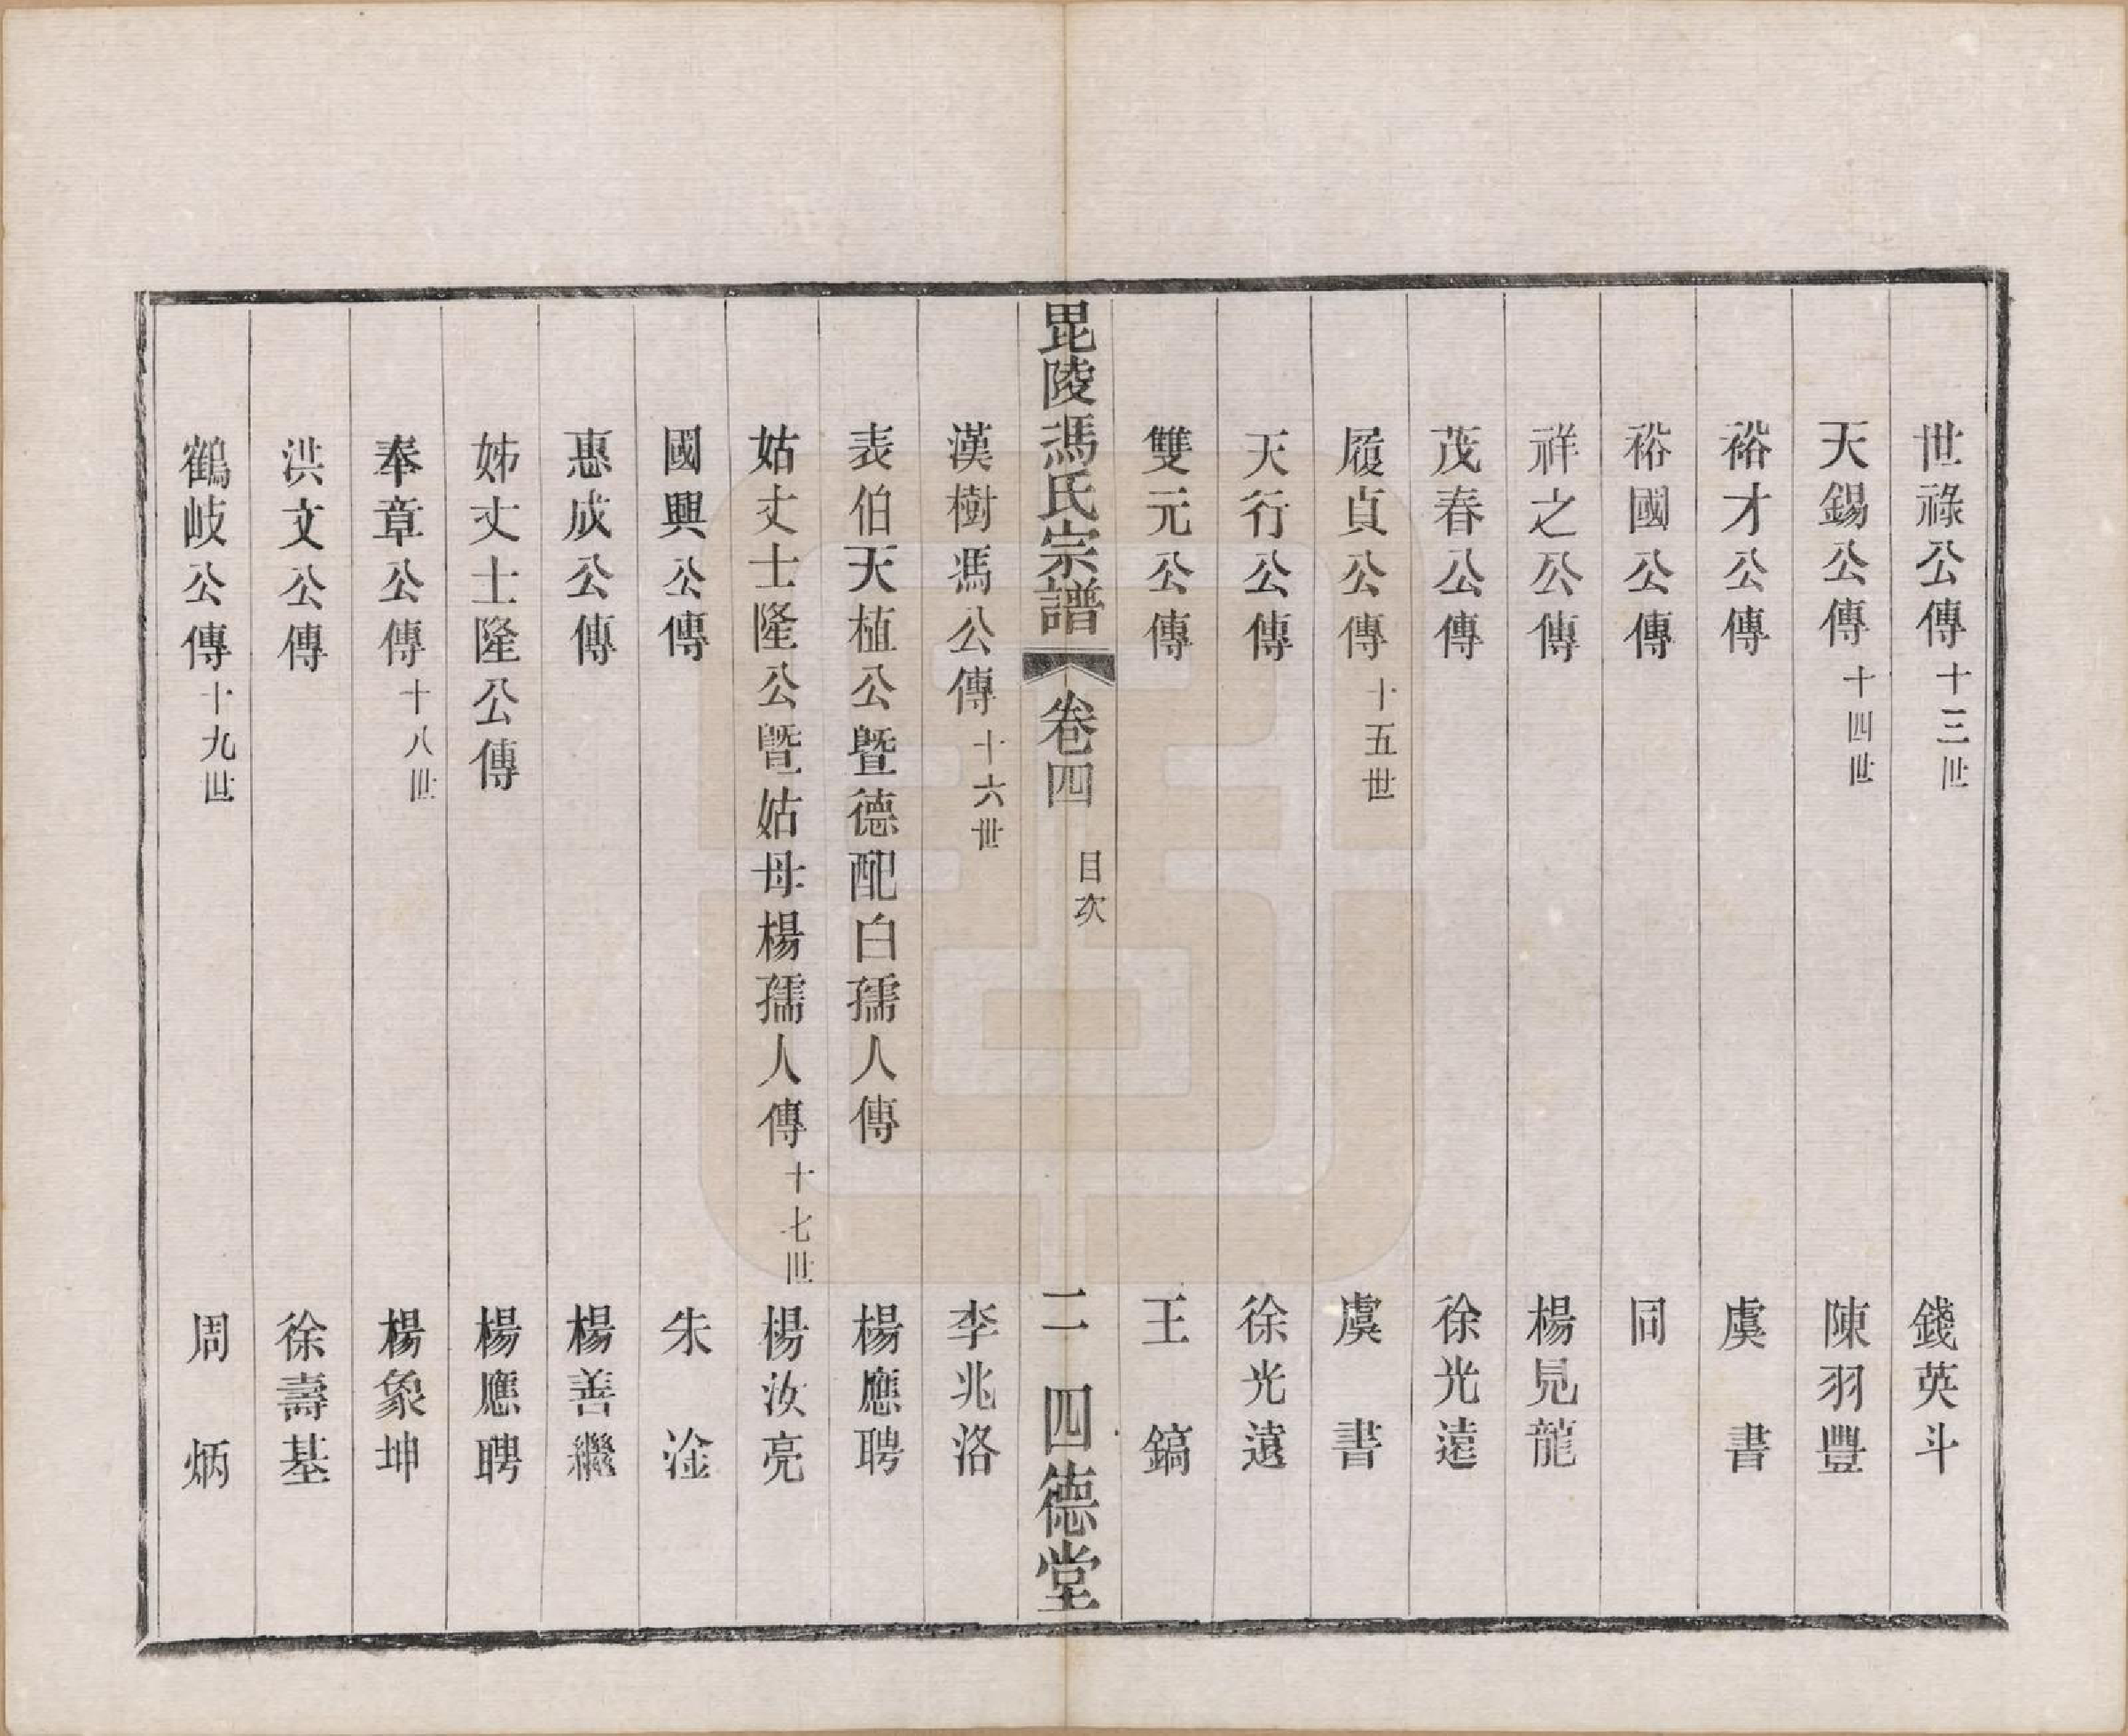 世祿公傳十三世　錢英斗
天錫公傳十四世　陳羽豐
裕才公傳　虞書
裕國公傳　同
祥之公傳　楊見龍
茂春公傳　徐光遠
履貞公傳十五世　虞書
天行公傳　徐光遠
雙元公傳　王鎬
毘陵馮氏宗譜　卷四　目次　二　四德堂
漢樹馮公傳十六世　李兆洛
表伯天植公暨德配白孺人傳　楊應聘
姑丈士隆公暨姑母楊孺人傳十七世　楊汝亮
國興公傳　朱淦
惠成公傳　楊善繼
姊丈士隆公傳　楊應聘
奉章公傳十八世　楊象坤
洪文公傳　徐壽基
鶴岐公傳十九世　周炳